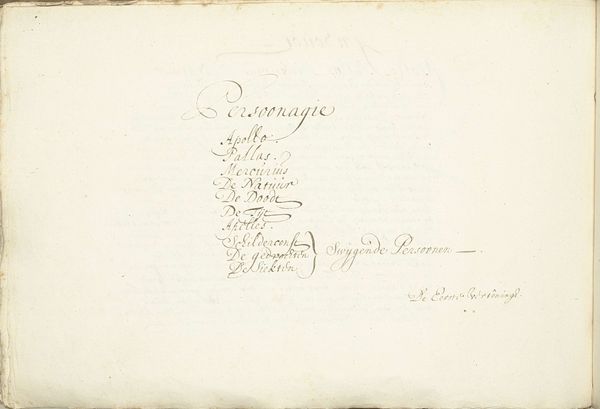 Persoonagie
Apollo.
Pallas.
Mercurius
De Natuur
De Doodt
De Tyt
Apelles.
Schilderconst
De gedrochten
De Siekten
Swijgende Persoonen
De Eerste Vertooninge.